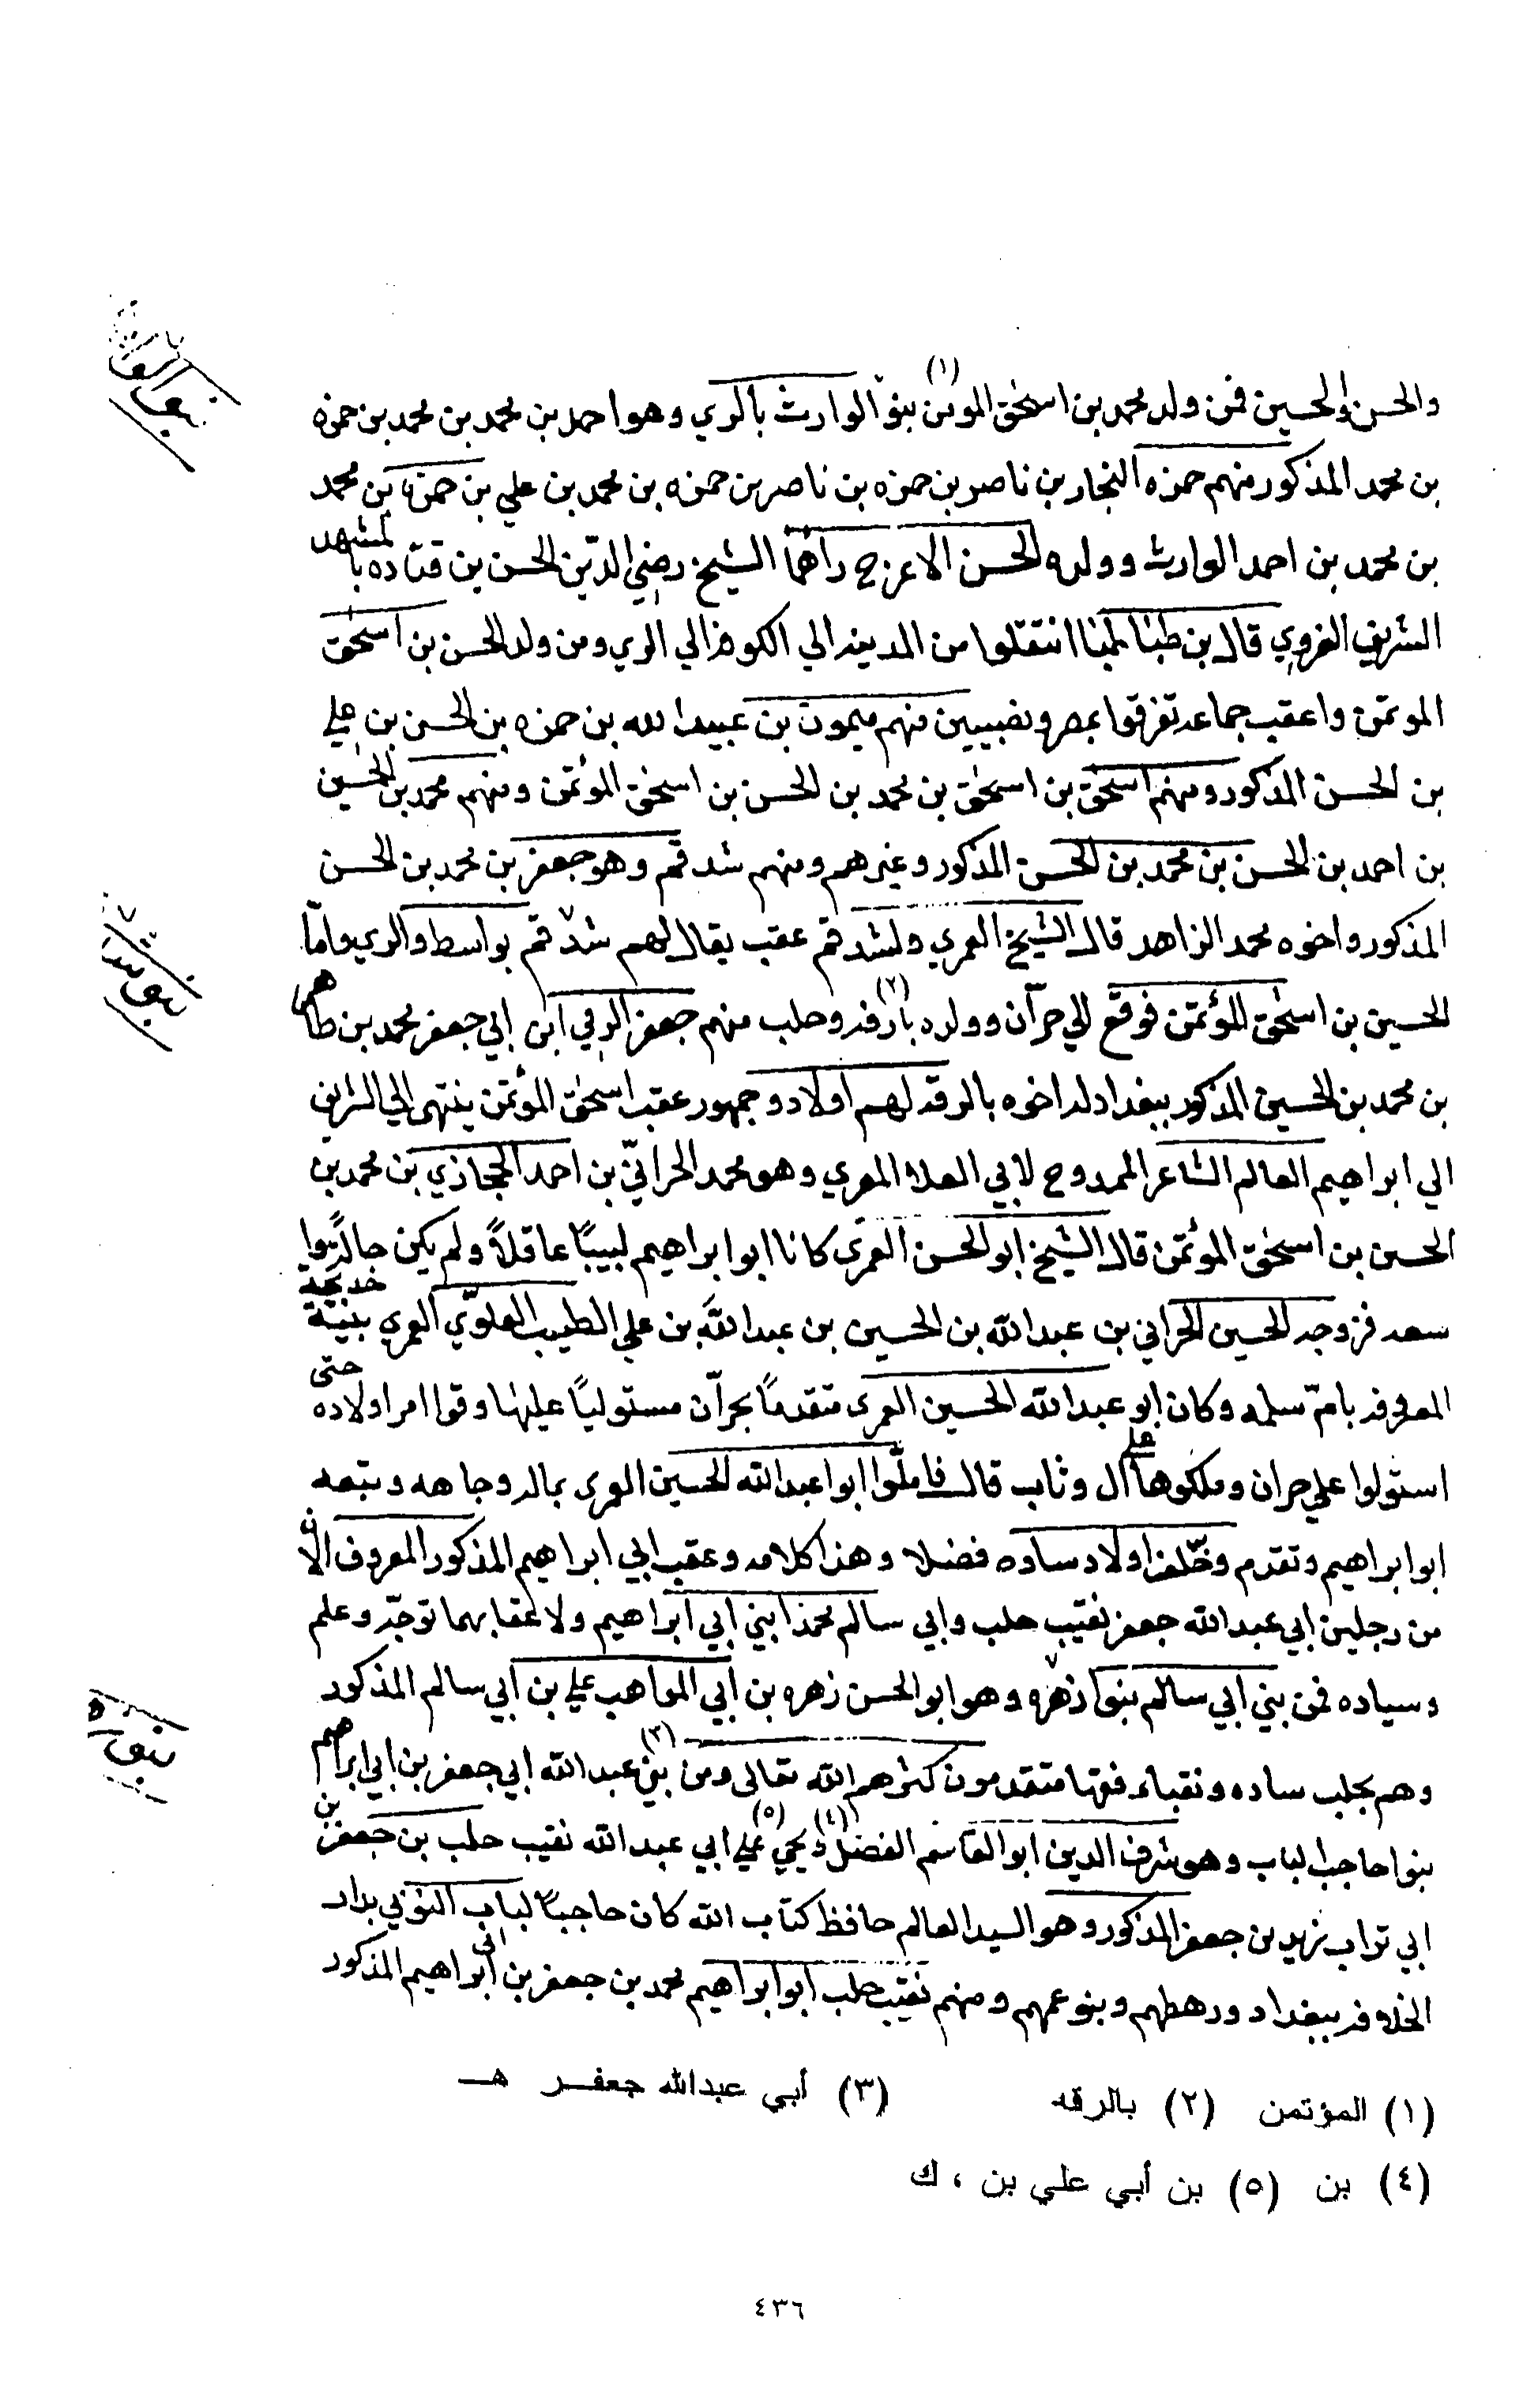 والحسن والحسين فمن ولد محمد بن اسحٰق الموتمن (١) بنو الوارث بالري وهو احمد بن محمد بن محمد بن حمزه
بن محمد المذكور منهم حمزه النجار بن ناصر بن حمزه بن ناصر بن حمزه بن محمد بن علي بن حمزه بن محمد
بن محمد بن احمد الوارث وولده الحسن الاعرج رآهما الشيخ رضي الدين الحسن بن قتاده بالمشهد
الشريف الغروي قال بن طباطبا انتقلوا من المدينه الي الكوفه الي الري ومن ولد الحسن بن اسحٰق
الموتمن واعقب جماعه تفرقوا بمصر ونصيبين منهم ميمون بن عبيد الله بن حمزه بن الحسن بن علي
بن الحسن المذكور ومنهم اسحٰق بن اسحٰق بن محمد بن الحسن بن اسحٰق المؤتمن ومنهم محمد بن الحسين
بن احمد بن الحسن بن محمد بن الحسن المذكور وغيرهم ومنهم شدقم وهو جعفر بن محمد بن الحسن
المذكور واخوه محمد الزاهد قال الشيخ العمري ولشدقم عقب يقال لهم شدقم بواسط والري واما
الحسين بن اسحٰق المؤتمن فوقع الي حرآن وولده بارقه (٢) وحلب منهم جعفر الرقي ابن ابي جعفر محمد بن طاهر
بن محمد بن الحسين المذكور ببغداد له اخوه بالرقه لهم اولاد وجمهور عقب اسحٰق المؤتمن ينتهى الي الشريف
الي ابراهيم العالم الشاعر الممدوح لابي العلا المعري وهو محمد الحرانيّ بن احمد الحجازي بن محمد بن
الحسين بن اسحٰق المؤتمن قال الشيخ ابو الحسن العمرى كانا ابوا ابراهيم لبيبًا عاقلاً ولم يكن حاله
سعد فزوجه الحسين الحراني بن عبد الله بن الحسين بن عبد الله بن علي الطبيب العلويّ العمري بنيته خديجة
المعروفه بامّ سلمه وكان ابو عبد الله الحسين العمرى متقدمًا بحرآن مستوليًا عليها وقوا امر اولاده حتى
استولوا علي حران وملكوها علي آل وثاب قال فاملّوا ابوا عبد الله الحسين العمرى بماله وجاهه وتبعه
ابوا براهيم وتقدم وخلّف اولاد ساده فضلا وهذا كلامه وعقب ابي ابراهيم المذكور المعروف الآن
من رجلين ابي عبد الله جعفر نقيب حلب وابي سالم محمد ابني ابي ابراهيم ولاعقابهما توجّه وعلم
وسياده فمن بني ابي سالم بنوا زهره وهو ابو الحسن زهره بن ابي المواهب علي بن ابي سالم المذكور
وهم بحلب ساده ونقباء فقها متقدمون كثرهم الله تعالى ومن بني (٣) عبد الله ابي جعفر بن ابي ابراهيم
بنوا حاجب الباب وهو شرف الدين ابو القاسم الفضل (٤) يحيى (٥) علي ابي عبد الله نقيب حلب بن جعفر بن
ابي تراب زيد بن جعفر المذكور وهو السيد العالم حافظ كتاب الله كان حاجبًا لباب النوبي بدار
الخلافه ببغداد ورهطهم وبنو عمهم ومنهم نقيب حلب ابوا براهيم محمد بن جعفر بن ابي ابراهيم المذكور
(١) المؤتمن (٢) بالرقه (٣) أبي عبدالله جعفر هـ
(٤) بن (٥) بن أبي علي بن ، ك
٤٣٦